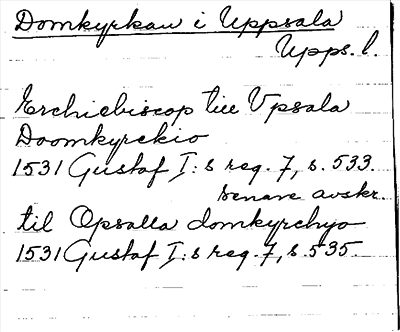 Domkyrkan i Uppsala
Upps. l.
Erchiebiscop till Vpsala
Doomkyrckio
1531 Gustaf I:s reg. 7, s. 533.
senare avskr.
til Opsalla domkyrchyo
1531 Gustaf I:s reg. 7, s. 535.